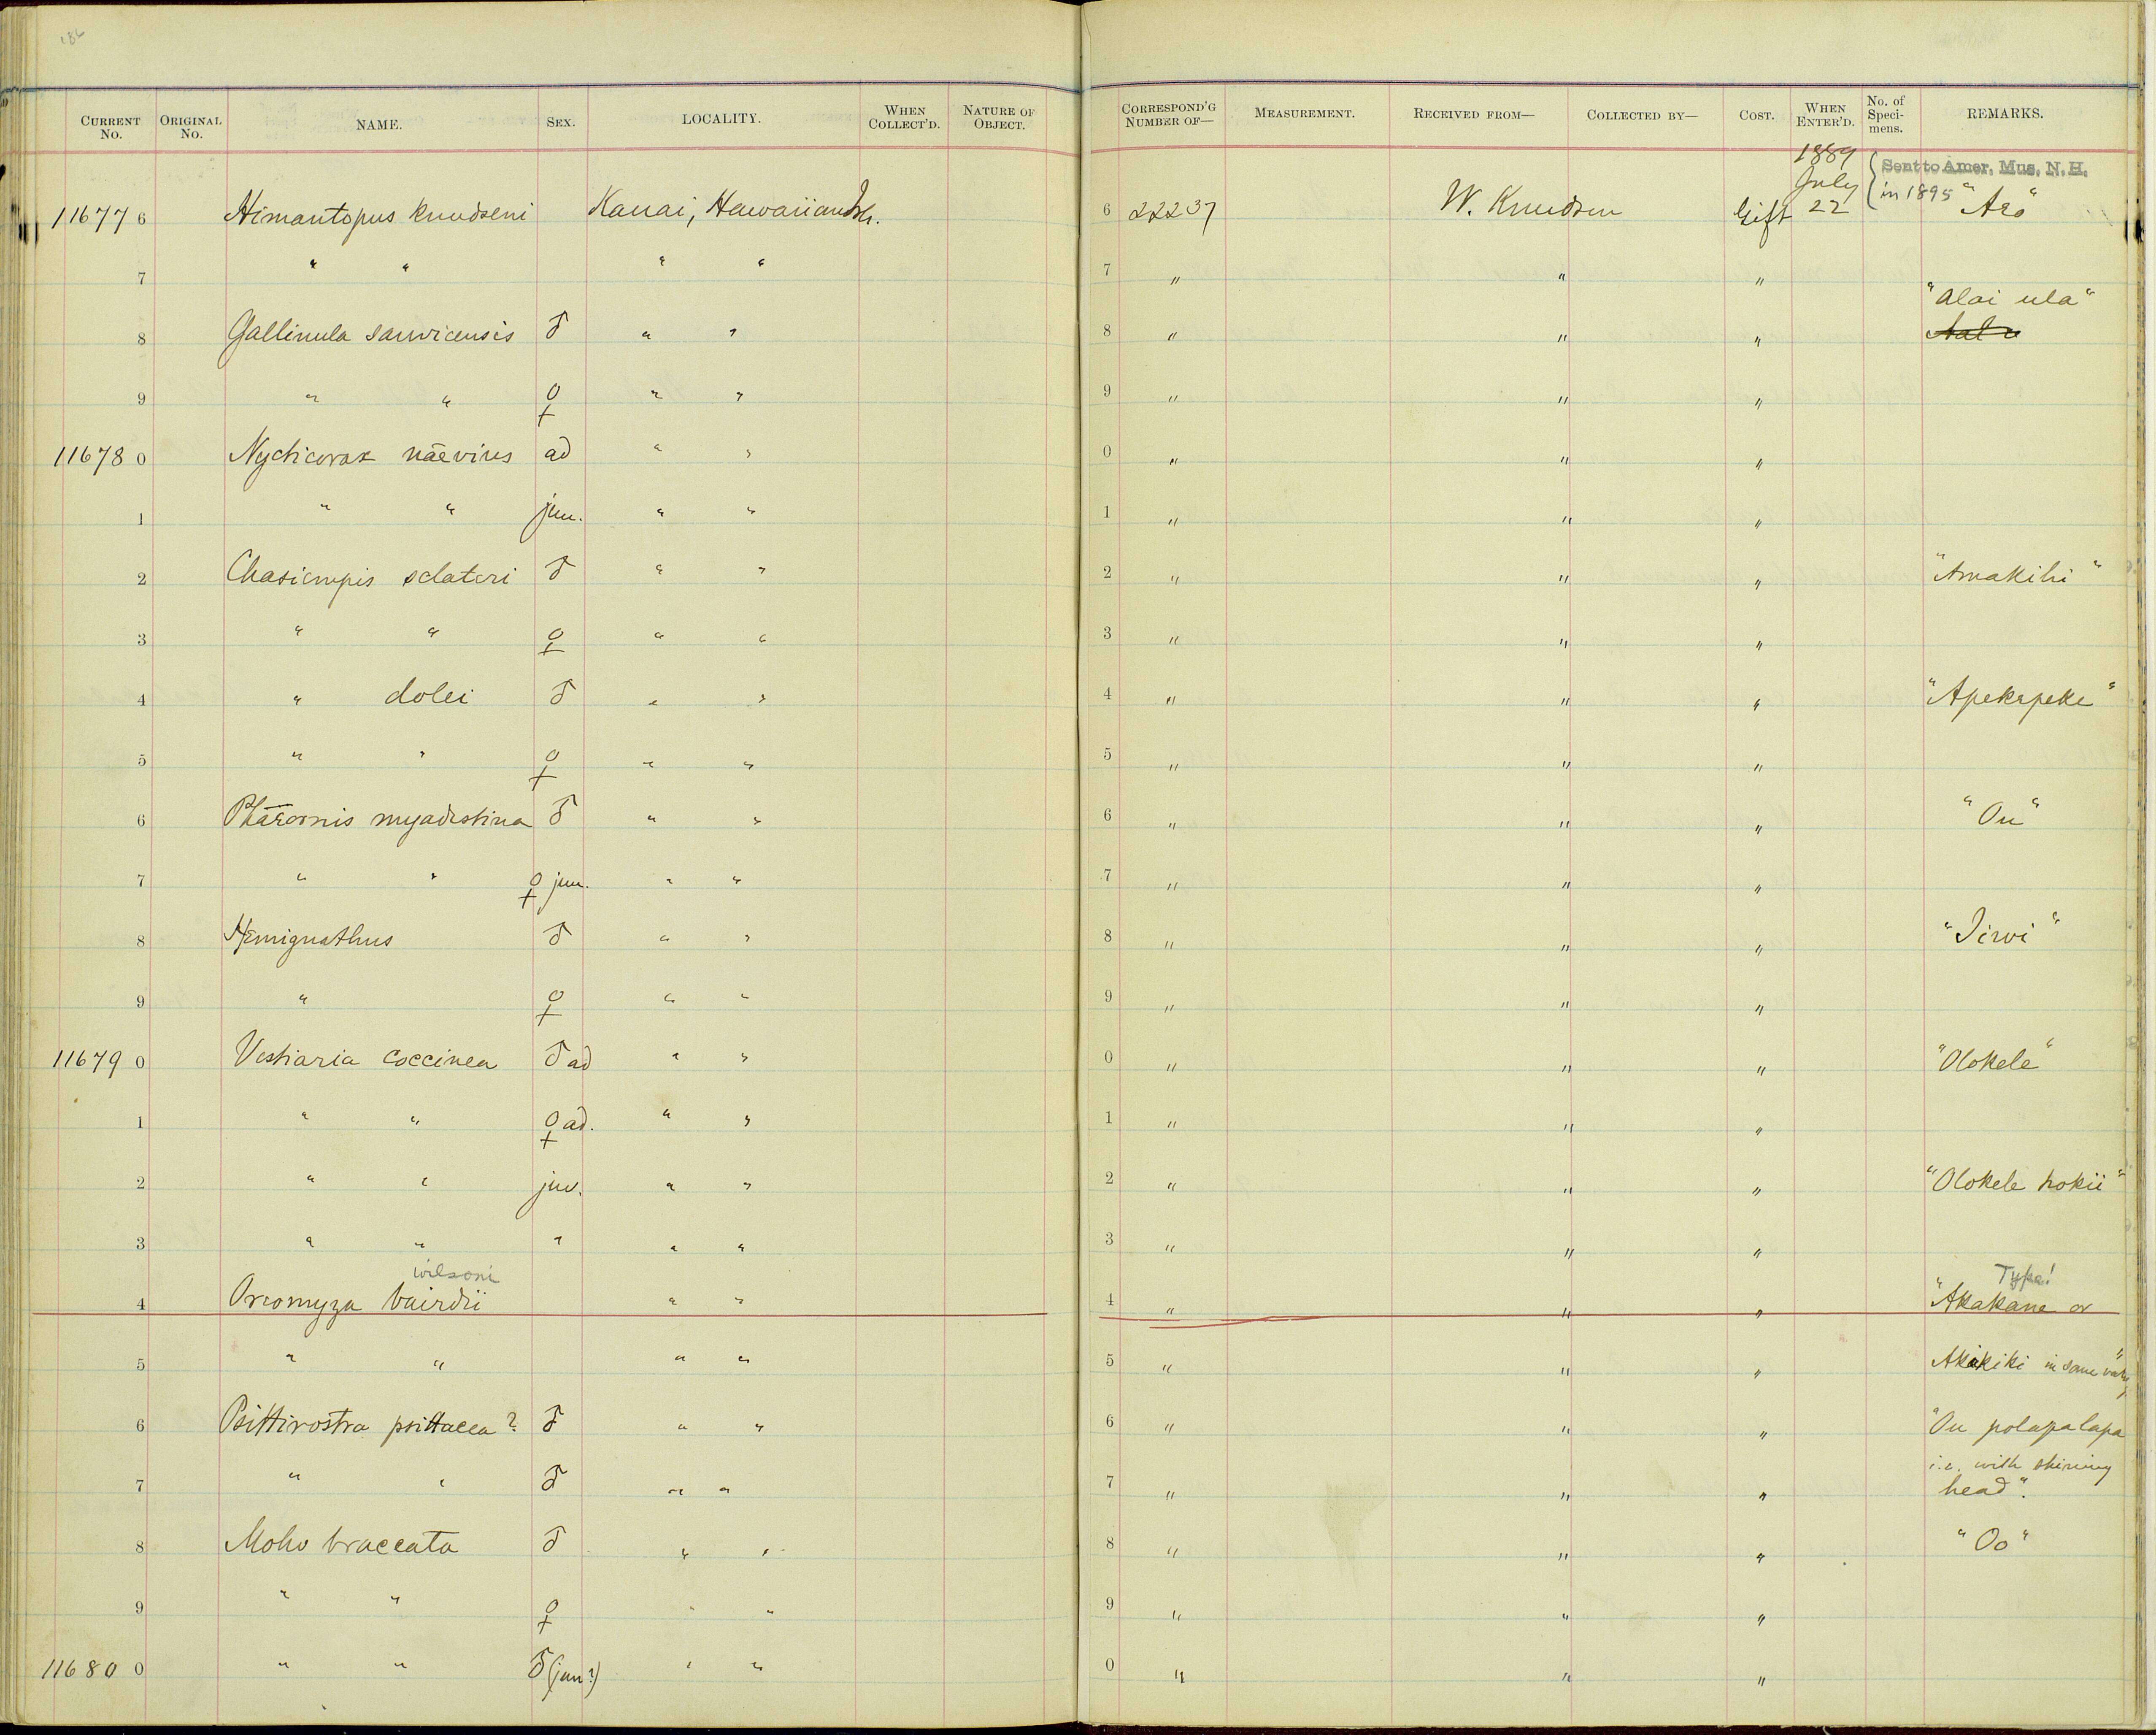 186
CURRENT No. ORIGINAL No. NAME. SEX. LOCALITY. WHEN COLLECT'D. NATURE OF OBJECT. CORRESPOND'G NUMBER OF— MEASUREMENT. RECEIVED FROM— COLLECTED BY— COST. WHEN ENTER'D. No. of Speci-mens. REMARKS.
1889 Sent to Amer. Mus. N. H.
July in 1895
11677 6 Himantopus knudseni Kauai, Hawaiian Isl. 6 22237 W. Knudsen Gift 22 "Aeo"
7 " " " " 7 " " "
"Alai ula"
8 Gallinula sanvicensis ♂ " " 8 " " "
9 " " ♀ " " 9 " " "
11678 0 Nycticorax naevius ad " " 0 " " "
1 " " jun. " " 1 " " "
2 Chasiempis sclateri ♂ " " 2 " " " "Amakihi"
3 " " ♀ " " 3 " " "
4 " dolei ♂ " " 4 " " " "Apekepeke"
5 " " ♀ " " 5 " " "
6 Phaeornis myadestina ♂ " " 6 " " " "Ou"
7 " " ♀ jun. " " 7 " " "
8 Hemignathus ♂ " " 8 " " " "Iiwi"
9 " ♀ " " 9 " " "
11679 0 Vestiaria coccinea ♂ ad " " 0 " " " "Olokele"
1 " " ♀ ad. " " 1 " " "
2 " " juv. " " 2 " " " "Olokele hokii"
3 " " " " " 3 " " "
wilsoni Type!
4 Oreomyza bairdii " " 4 " " " "Akakane or
5 " " " " 5 " " " Akikiki in same vall'y"
6 Psittirostra psittacea? ♂ " " 6 " " " "Ou polapalapa
i.e. with shining
7 " " ♂ " " 7 " " " head".
8 Moho braccata ♂ " " 8 " " " "Oo"
9 " " ♀ " " 9 " " "
11680 0 " " ♂ (jun?) " " 0 " " "